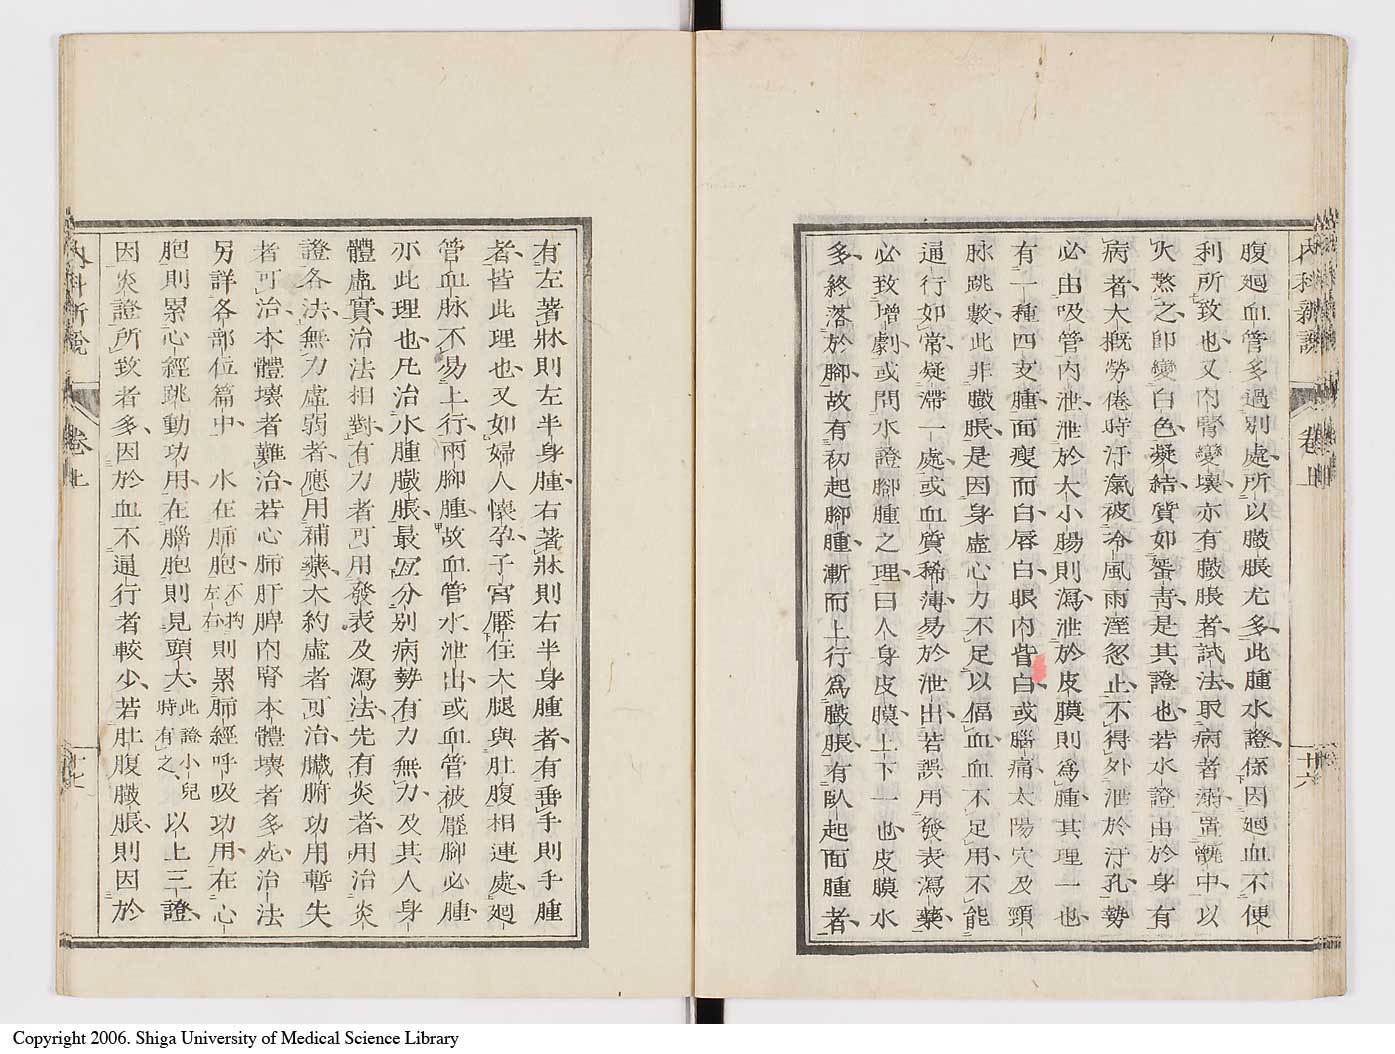 內科新說
卷上
十六
腹廻血管多過別處所以臌脹尤多此腫水證係因廻血不便
利所致也又內腎變壞亦有臌脹者試法取病者溺置甑中以
火熬之卽變白色凝結質如蜑靑是其證也若水證由於身有
病者大概勞倦時汗氣被冷風雨溼忽止不得外泄於汗孔勢
必由吸管內泄於大小腸則瀉泄於皮膜則爲腫其理一也
有一種四支腫面瘦而白唇白眼內眥白或腦痛太陽穴及頸
脉跳數此非臌脹是因身虛心力不足以偪血血不足用不能
通行如常凝滯一處或血質稀薄易於泄出若誤用發表瀉藥
必致增劇或問水證腳腫之理曰人身皮膜上下一也皮膜水
多終落於腳故有初起腳腫漸而上行爲臌脹有臥起面腫者
有左著牀則左半身腫右著牀則右半身腫者有垂手則手腫
者皆此理也又如婦人懷孕子宮壓住大腿與肚腹相連處廻
管血脉不易上行兩腳腫故血管水泄出或血管被壓腳必腫
亦此理也凡治水腫臌脹最宜分別病勢有力無力及其人身
體虛實治法相對有力者可用發表及瀉法先有炎者用治炎
證各法無力虛弱者應用補藥大約虛者可治臟腑功用暫失
者可治本體壞者難治若心肺肝脾內腎本體壞者多死治法
另詳各部位篇中 水在肺胞不拘左右則累肺經呼吸功用在心
胞則累心經跳動功用在腦胞則見頭大此證小兒時有之以上三證
因炎證所致者多因於血不通行者較少若肚腹臌脹則因於
內科新說
卷上
十七
Copyright 2006. Shiga University of Medical Science Library